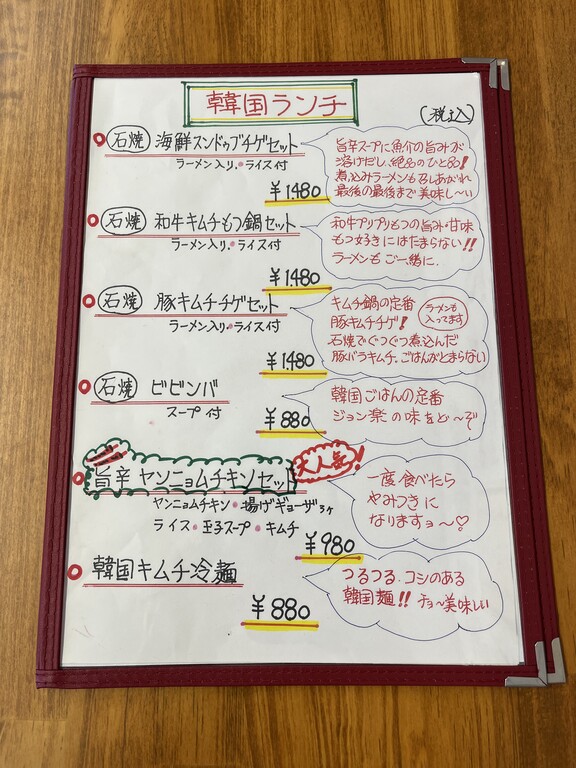 韓国ランチ
(税込)
石焼 海鮮スンドゥブチゲセット
ラーメン入り・ライス付
¥1480
旨辛スープに魚介の旨みが
溶けだし、絶品のひと品!
煮込みラーメンもめしあがれ
最後の最後まで美味し〜い
石焼 和牛キムチもつ鍋セット
ラーメン入り・ライス付
¥1480
和牛プリプリもつの旨み・甘味
もつ好きにはたまらない!!
ラーメンもご一緒に.
石焼 豚キムチチゲセット
ラーメン入り・ライス付
¥1480
キムチ鍋の定番
豚キムチチゲ!
ラーメンも
入ってます
石焼でぐつぐつ煮込んだ
豚バラキムチ.ごはんがとまらない
石焼 ビビンバ
スープ付
¥880
韓国ごはんの定番
ジョン楽の味をど〜ぞ
旨辛 ヤンニョムチキンセット
大人気!
ヤンニョムチキン・揚げギョーザ3ヶ
ライス・玉子スープ・キムチ
¥980
一度食べたら
やみつきに
なりますョ〜♡
韓国キムチ冷麺
¥880
つるつる.コシのある
韓国麺!! チョ〜美味しい